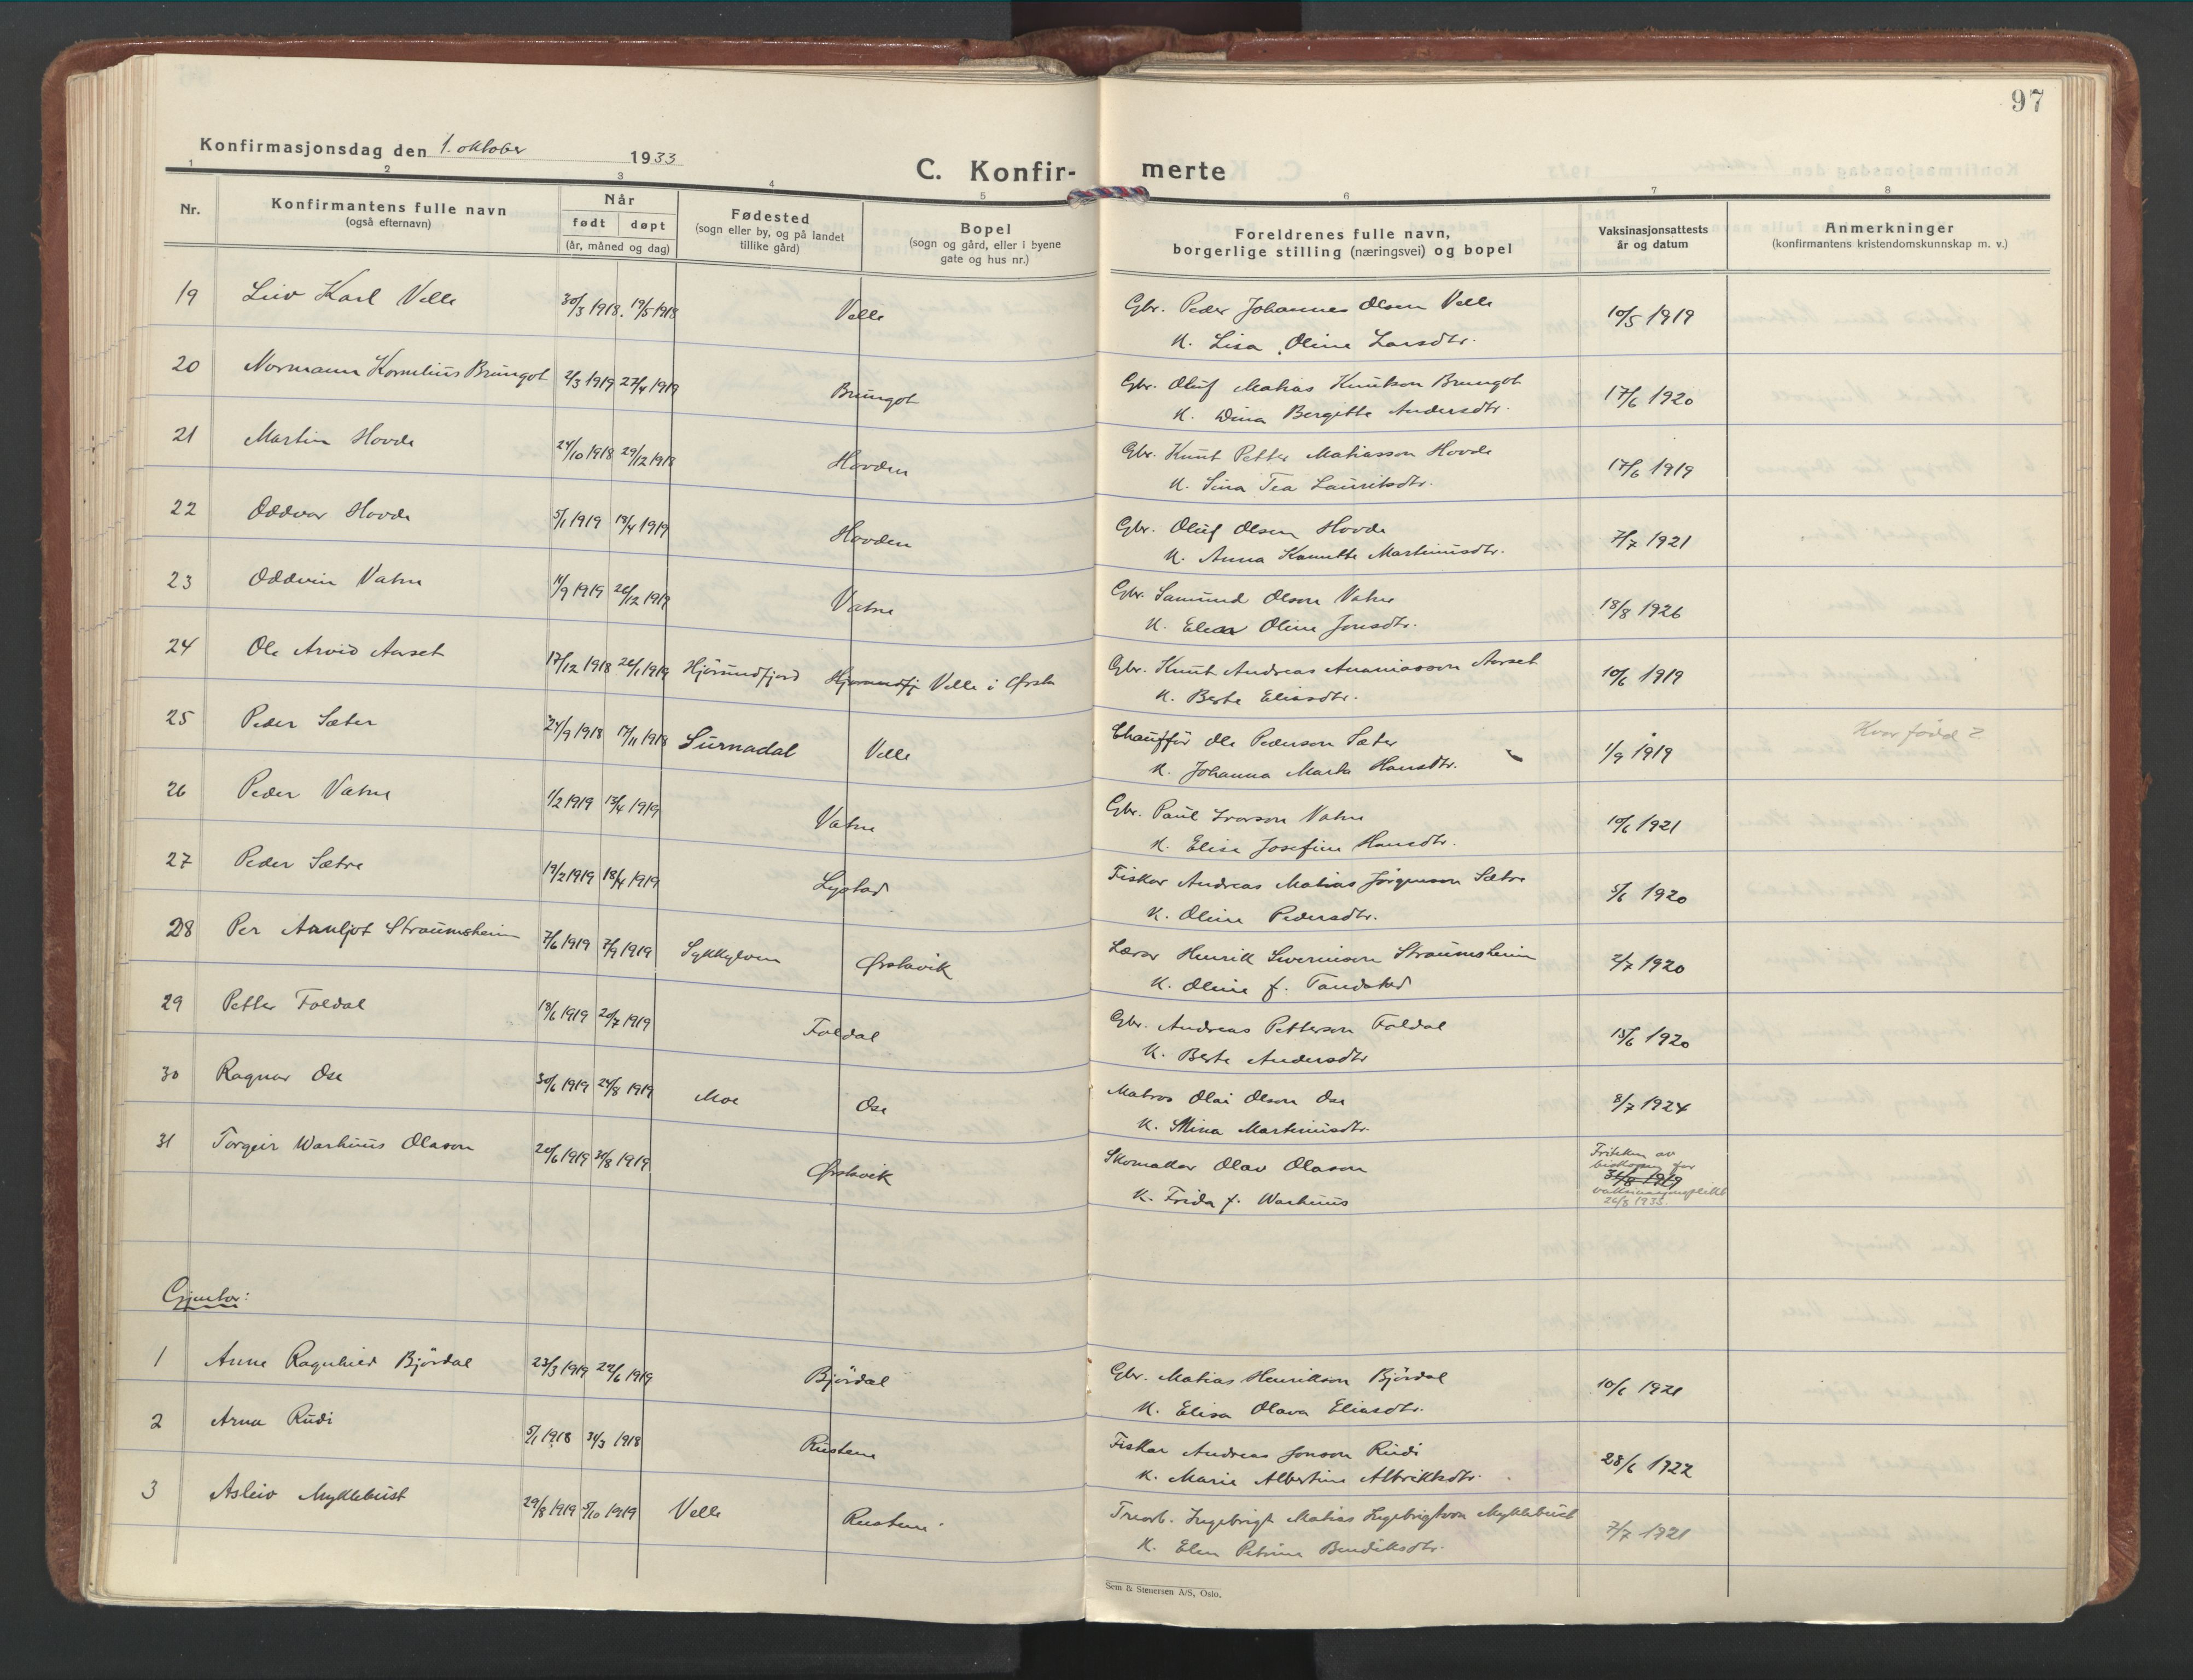 97
Konfirmasjonsdag den 1. oktober 1933
C. Konfir- merte
1 2 3 4 5 6 7 8
Nr.
Konfirmantens fulle navn
(også efternavn)
Når
født døpt
(år, måned og dag)
Fødested
(sogn eller by, og på landet
tillike gård)
Bopel
(sogn og gård, eller i byene
gate og hus nr.)
Foreldrenes fulle navn,
borgerlige stilling (næringsvei) og bopel
Vaksinasjonsattests
år og datum
Anmerkninger
(konfirmantens kristendomskunnskap m. v.)
19 Leiv Karl Velle 30/3 1918. 19/5 1918 Velle Gbr. Peder Johannes Olsen Velle 10/5 1919
K. Lisa Oline Larsdtr.
20 Normann Kornelius Brungot 2/3 1919 27/4 1919 Brungot Gbr. Oluf Matias Knutson Brungot 17/6 1920
K. Dina Bergitte Andersdtr.
21 Martin Hovde 24/10 1918 29/12 1918 Hovden Gbr. Knut Petter Matiasson Hovde 17/6 1919
K. Sina Tea Lauritsdtr.
22 Oddvar Hovde 5/1 1919 13/4 1919 Hovden Gbr. Oluf Olsen Hovde 7/7 1921
K. Anna Kanutte Martinusdtr.
23 Oddvin Vatne 11/9 1919 26/12 1919 Vatne Gbr. Samund Olson Vatne 18/8 1926
K. Elen Oline Jonsdtr.
24 Ole Arvid Aarset 17/12 1918 26/1 1919 Hjørundfjord Hjørundfj. Velle i Ørsta Gbr. Knut Andreas Ananiasson Aarset 10/6 1919
K. Berte Eliasdtr.
25 Peder Sæter 24/9 1918 17/11 1918 Surnadal Velle Chauffør Ole Pederson Sæter 1/9 1919 Kvar fødd?
K. Johanna Marta Hansdtr.
26 Peder Vatne 1/2 1919 13/4 1919 Vatne Gbr. Paul Ivarson Vatne 10/6 1921
K. Elise Josefine Hansdtr.
27 Peder Sætre 19/2 1919 18/4 1919 Lystad Fiskar Andreas Matias Jørgenson Sætre 5/6 1920
K. Oline Pedersdtr.
28 Per Arnljot Straumsheim 7/6 1919 7/9 1919 Sykkylven Ørstavik Lærar Henrik Severinson Straumsheim 2/7 1920
K. Oline f. Tandstad
29 Petter Foldal 13/6 1919 20/7 1919 Foldal Gbr. Andreas Petterson Foldal 15/6 1920
K. Berte Andersdtr
30 Ragnar Ose 30/6 1919 24/8 1919 Moe Ose Matros Olai Olson Ose 8/7 1924
K. Mina Martinusdtr.
31 Torgeir Warhuus Olason 20/6 1919 31/8 1919 Ørstavik Skomakar Olav Olason
K. Frida f. Warhuus
Friteken av
biskopen for
31/8 1919
vaksinasjonsplikt
26/8 1933.
Gjentor:
1 Anne Ragnhild Bjørdal 23/3 1919 22/6 1919 Bjørdal Gbr. Matias Henrikson Bjørdal 10/6 1921
K. Elisa Olava Eliasdtr.
2 Arna Rudi 5/1 1918 31/3 1918 Rustene Fiskar Andreas Jonson Rudi 28/6 1922
K. Marie Albertine Albriktsdtr.
3 Asleiv Myklebust 29/8 1919 5/10 1919 Velle Rustene Trearb. Ingebrigt Matias Ingebrigtson Myklebust 7/7 1921
K. Elen Petrine Bendiksdtr.
Sem & Stenersen A/S, Oslo.